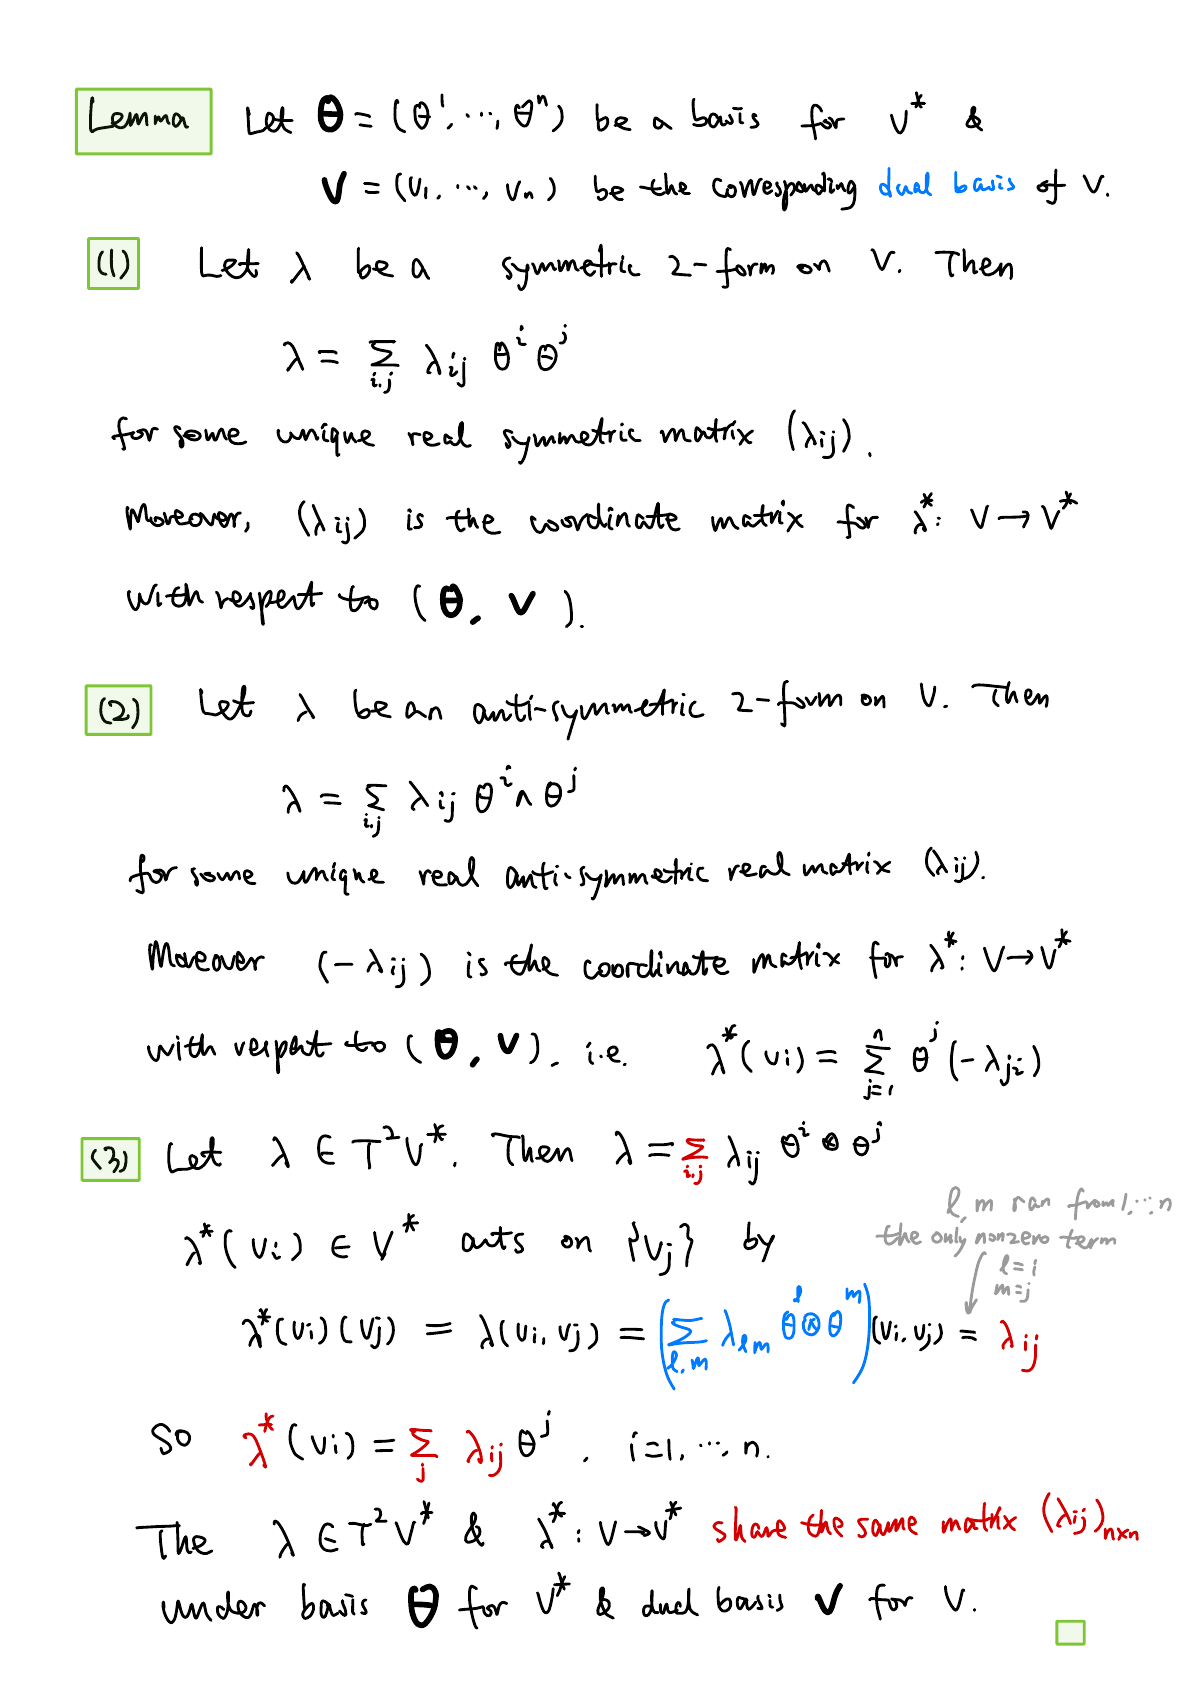 Lemma Let θ = (θ¹, ⋯, θⁿ) be a basis for V* &
v = (v₁, ⋯, vₙ) be the corresponding dual basis of V.
(1) Let λ be a symmetric 2-form on V. Then
λ = Σ_{i,j} λ_{ij} θ^i θ^j
for some unique real symmetric matrix (λ_{ij}).
Moreover, (λ_{ij}) is the coordinate matrix for λ*: V → V*
with respect to (θ, v).
(2) Let λ be an anti-symmetric 2-form on V. Then
λ = Σ_{i,j} λ_{ij} θ^i ∧ θ^j
for some unique real anti-symmetric real matrix (λ_{ij}).
Moreover (-λ_{ij}) is the coordinate matrix for λ*: V → V*
with respect to (θ, v), i.e. λ*(v_i) = Σ_{j=1}^{n} θ^j (-λ_{ji})
(3) Let λ ∈ T²V*. Then λ = Σ_{i,j} λ_{ij} θ^i ⊗ θ^j
l, m ran from 1, ⋯, n
the only nonzero term
l = i
m = j
λ*(v_i) ∈ V* acts on {v_j} by
λ*(v_i)(v_j) = λ(v_i, v_j) = (Σ_{l,m} λ_{lm} θ^l ⊗ θ^m)(v_i, v_j) = λ_{ij}
So λ*(v_i) = Σ_j λ_{ij} θ^j, i = 1, ⋯, n.
The λ ∈ T²V* & λ*: V → V* share the same matrix (λ_{ij})_{n×n}
under basis θ for V* & dual basis v for V.